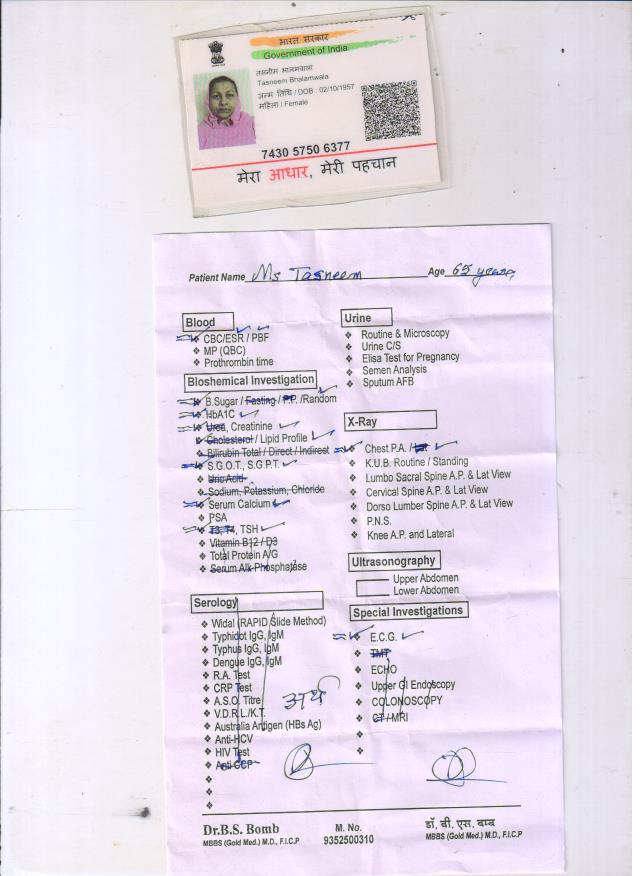 भारत सरकार
Government of India
तसनीम भालमवाला
Tasneem Bhalamwala
जन्म तिथि / DOB : 02/10/1957
महिला / Female
7430 5750 6377
मेरा आधार, मेरी पहचान
Patient Name Ms Tasneem Age 65 years,
Blood
CBC/ESR / PBF
MP (QBC)
Prothrombin time
Bioshemical Investigation
B.Sugar / Fasting / P.P. /Random
HbA1C
Urea, Creatinine
Cholesterol / Lipid Profile
Bilirubin Total / Direct / Indirect
S.G.O.T., S.G.P.T.
Uric Acid
Sodium, Potassium, Chloride
Serum Calcium
PSA
T3, T4, TSH
Vitamin B12 / D3
Total Protein A/G
Serum Alk Phosphatase
Serology
Widal (RAPID Slide Method)
Typhidot IgG, IgM
Typhus IgG, IgM
Dengue IgG, IgM
R.A. Test
CRP Test
A.S.O. Titre
V.D.R.L./K.T.
Australia Antigen (HBs Ag)
Anti-HCV
HIV Test
Anti-CCP
Urine
Routine & Microscopy
Urine C/S
Elisa Test for Pregnancy
Semen Analysis
Sputum AFB
X-Ray
Chest P.A. /
K.U.B. Routine / Standing
Lumbo Sacral Spine A.P. & Lat View
Cervical Spine A.P. & Lat View
Dorso Lumber Spine A.P. & Lat View
P.N.S.
Knee A.P. and Lateral
Ultrasonography
Upper Abdomen
Lower Abdomen
Special Investigations
E.C.G.
TMT
ECHO
Upper GI Endoscopy
COLONOSCOPY
CT / MRI
Dr.B.S. Bomb
MBBS (Gold Med.) M.D., F.I.C.P
M. No.
9352500310
डॉ. बी. एस. बम्ब
MBBS (Gold Med.) M.D., F.I.C.P